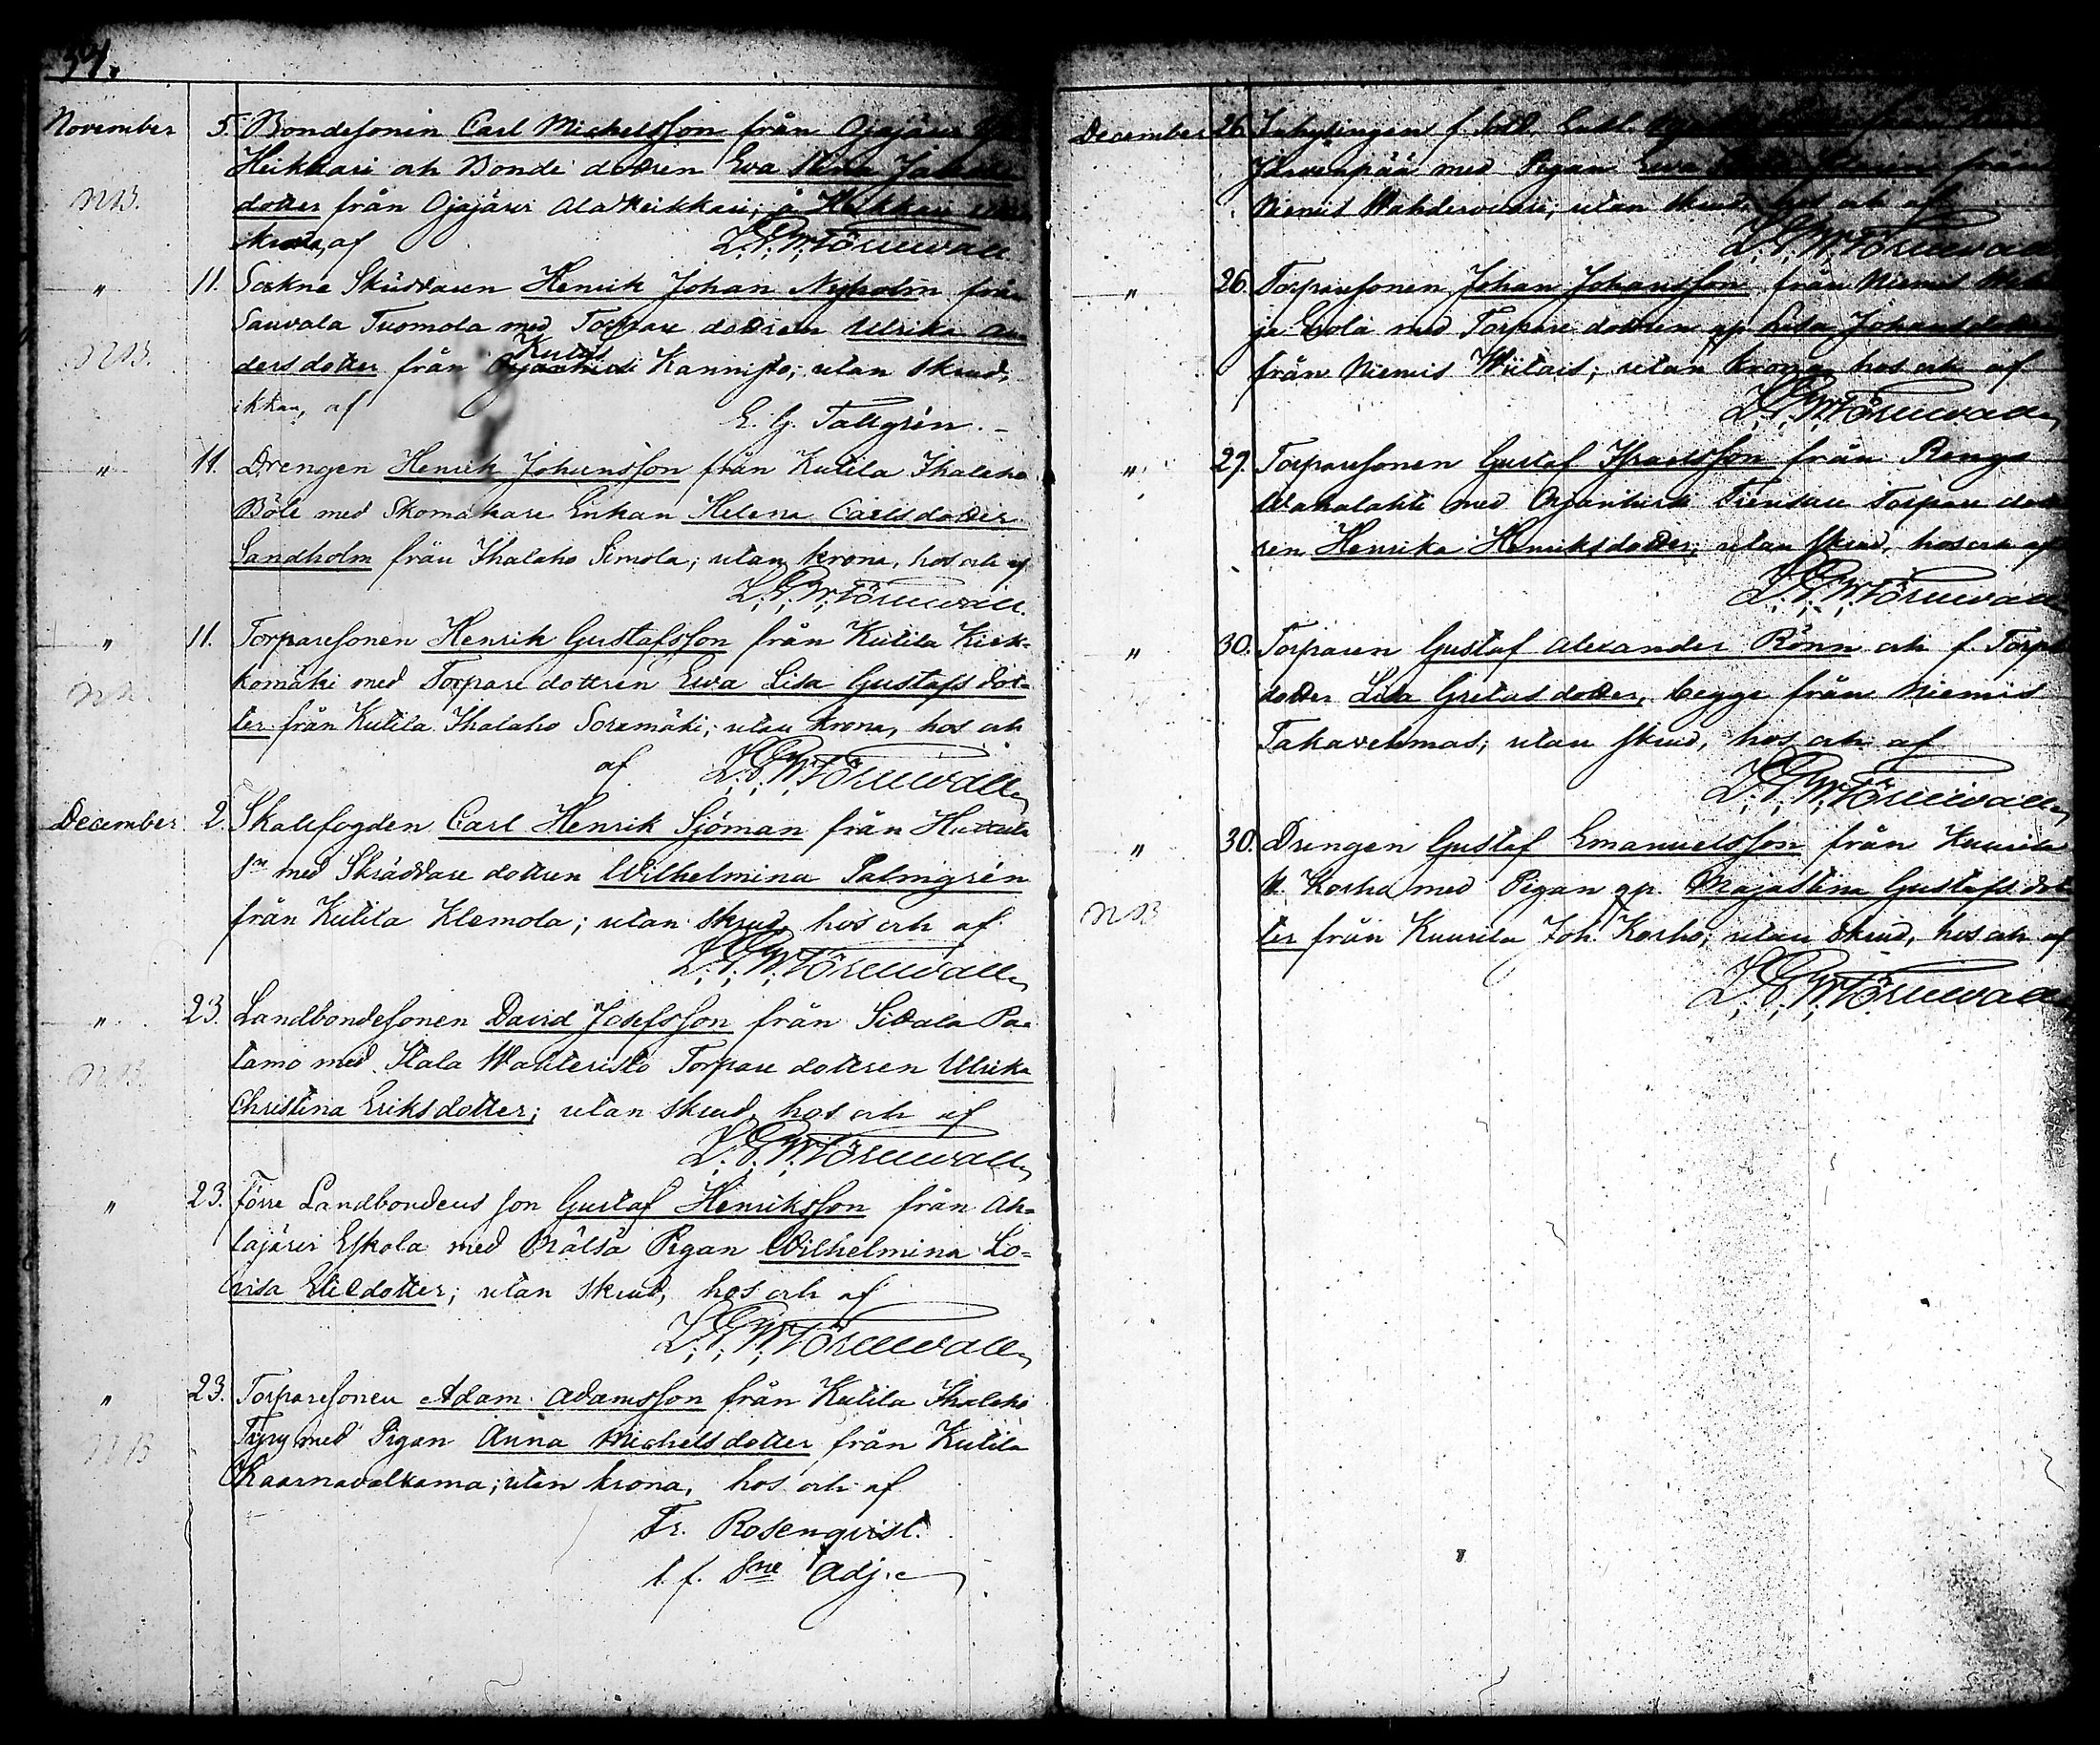 November 5. Bondesonen Carl Michelsson från Ojajärvi
Heikkari och Bonde dottren Eva Stina
NB. dotter från Ojajärvi Ala Heikkari; i
krona, af L. G. W. Törnwall
" 11. Sockne Skräddaren Henrik Johan Nyholm från
Sauvala Tuomola med Torpare dottren Ulrika An-
NB. dersdotter från Kutila Kannisto; utan skrud,
ikkan, af E. G. Tallgrén.
" 11. Drengen Henrik Johansson från Kutila Ihalaho
Böle med Skomakare Enkan Helena Carlsdotter
Sandholm från Ihalaho Simola; utan krona, hos och af
L. G. W. Törnwall.
" 11. Torparesonen Henrik Gustafsson från Kutila Kiek-
komäki med Torpare dottren Ewa Lisa Gustafs dot-
ter från Kutila Ihalaho Soramäki; utan krona, hos och
af L. G. W. Törnwall
December 2. Skallfogden Carl Henrik Sjöman från
Sn med Skräddare dottren Wilhelmina Palmgrén
från Kutila Klemola; utan skrud, hos och af
L. G. W. Törnwall
" 23. Landbondesonen David Josefsson från Sittala Pa-
NB. tamo med Itala Wahteristo Torpare dottren Ulrika
Christina Eriksdotter; utan skrud, hos och af
L. G. W. Törnwall
" 23. Förre Landbondens son Gustaf Henriksson från Ah-
lajärvi Eskola med Mälsä Pigan Wilhelmina Lo-
visa dotter; utan skrud, hos och af
L. G. W. Törnwall
" 23. Torparesonen Adam Adamsson från Kutila Ihalaho
NB Tyry med Pigan Anna Michelsdotter från Kutila
Kaarnavalkama; utan krona, hos och af
Fr. Rosenqvist.
t. f. Sne Adj.
December 26. Inhysingen f. Sold. Enkl.
med Pigan Ewa från
Niemis utan skrud, hos och af
L. G. W. Törnwall
" 26. Torparesonen Johan Johansson från Niemis
ja Erola med Torpare dottren gp Lisa Johansdotter
från Niemis Wiitais; utan krona, hos och af
L. G. W. Törnwall
" 29. Torparesonen Gustaf Israelsson från Rengo
Wahalahti med Orjanhirsi Torpare dott
ren Henrika Henriksdotter; utan skrud, hos och af
L. G. W. Törnwall
" 30. Torparen Gustaf Alexander Rönn och f. Torp.
dotter Lisa Gretasdotter, begge från Niemis
Takavehmas; utan skrud, hos och af
L. G. W. Törnwall
" 30. Drengen Gustaf Emanuelsson från Kuurila
NB U. Korho med Pigan gp. Majastina Gustafs dot-
ter från Kuurila Joh. Korho; utan skrud, hos och af
L. G. W. Törnwall